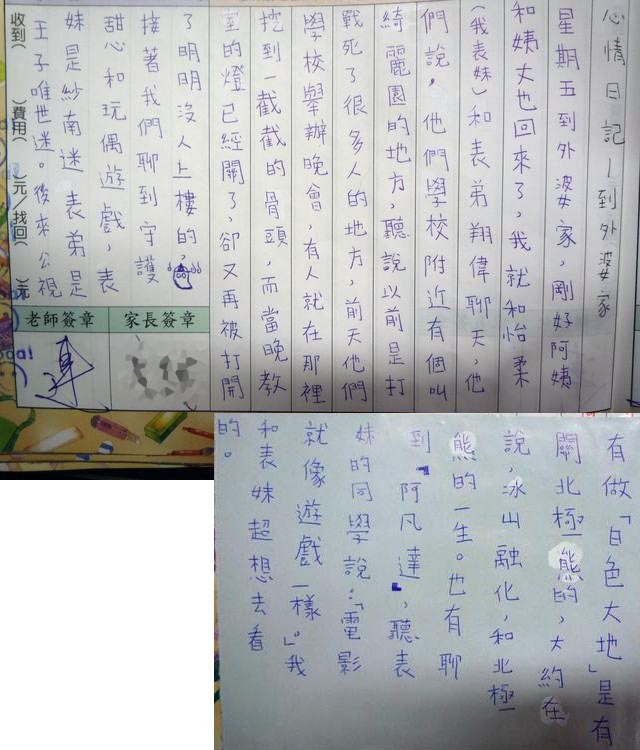 心情日記—到外婆家
星期五到外婆家，剛好阿姨
和姨丈也回來了，我就和怡柔
(我表妹)和表弟翔偉聊天，他
們說，他們學校附近有個叫
綺麗園的地方，聽說以前是打
戰死了很多人的地方，前天他們
學校舉辦晚會，有人就在那裡
挖到一截截的骨頭，而當晚教
室的燈已經關了，卻又再被打開
了明明沒人上樓的，
接著我們聊到守護
甜心和玩偶遊戲，表
妹是紗南迷 表弟是
王子唯世迷。後來公視
收到( )費用( )元/找回( )元
家長簽章
老師簽章
有做「白色大地」是有
關北極熊的，大約在
說，冰山融化，和北極
熊的一生。也有聊
到「阿凡達」，聽表
妹的同學說：「電影
就像遊戲一樣。」我
和表妹超想去看
的。